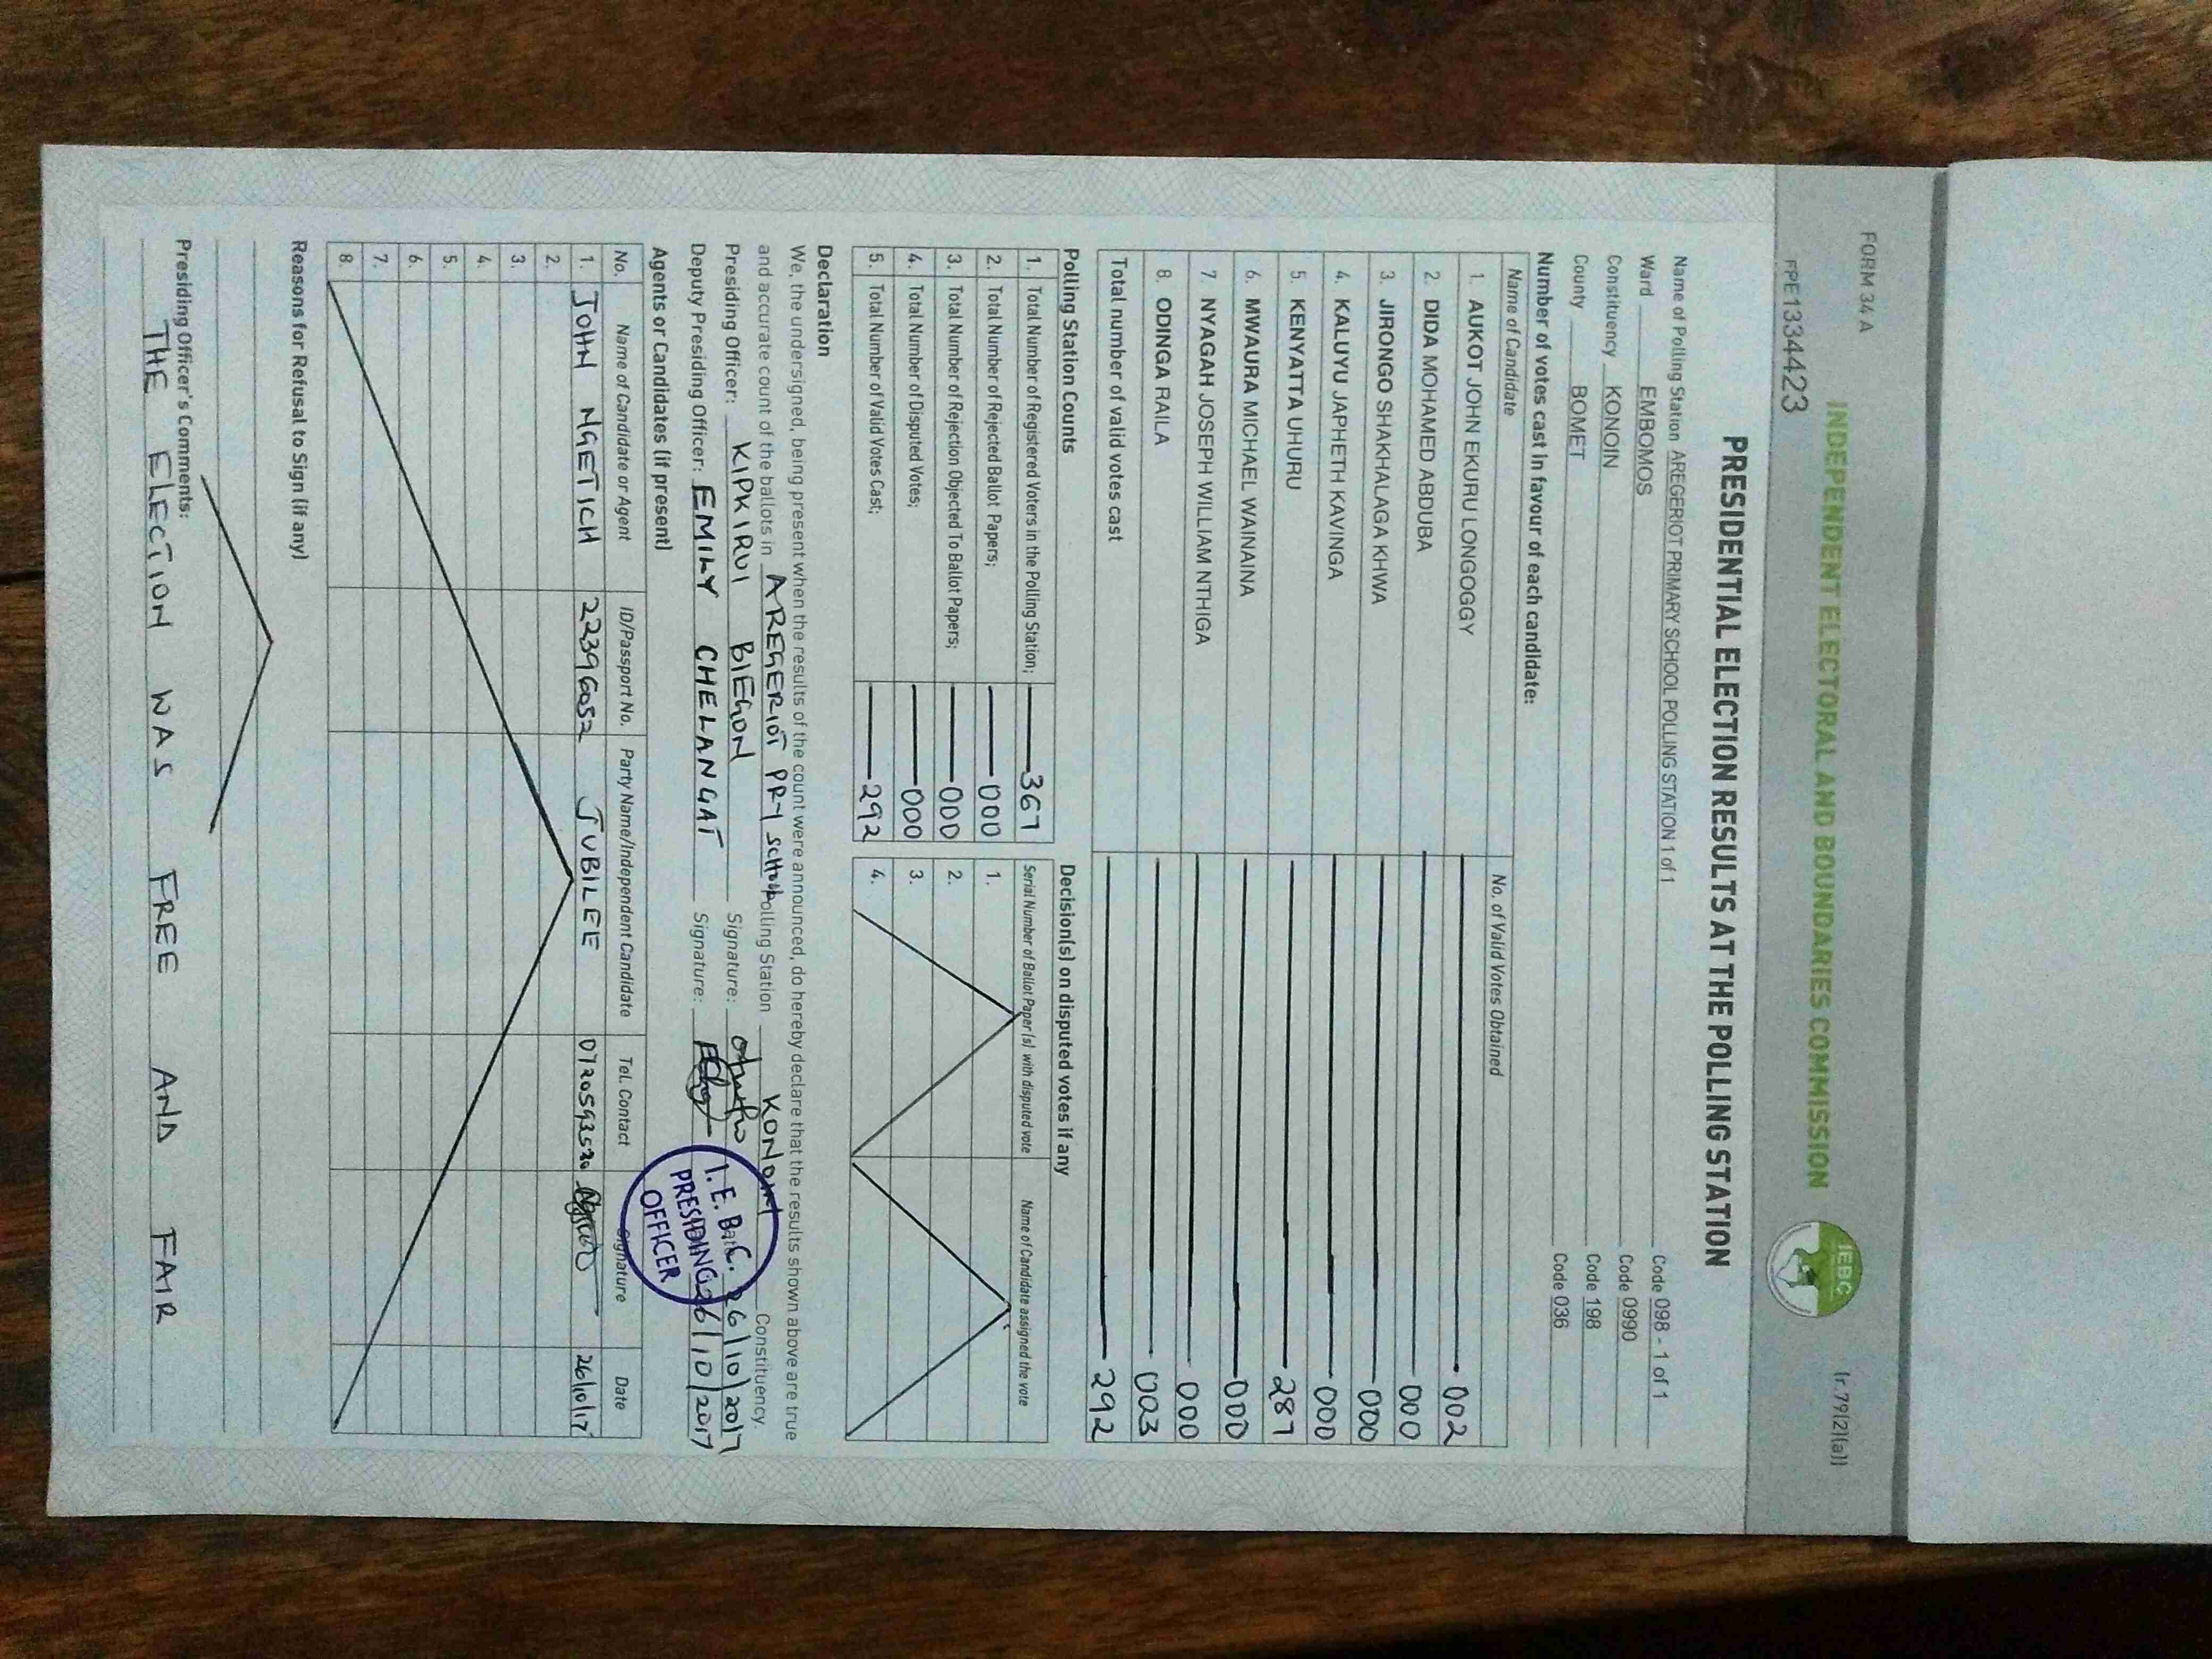 FORM 34 A
(r.79(2)(a))
INDEPENDENT ELECTORAL AND BOUNDARIES COMMISSION
IEBC
FPE1334423
PRESIDENTIAL ELECTION RESULTS AT THE POLLING STATION
Name of Polling Station AREGERIOT PRIMARY SCHOOL POLLING STATION 1 of 1 Code 098 - 1 of 1
Ward EMBOMOS Code 0990
Constituency KONOIN Code 198
County BOMET Code 036
Number of votes cast in favour of each candidate:
Name of Candidate No. of Valid Votes Obtained
1. AUKOT JOHN EKURU LONGOGGY 002
2. DIDA MOHAMED ABDUBA 000
3. JIRONGO SHAKHALAGA KHWA 000
4. KALUYU JAPHETH KAVINGA 000
5. KENYATTA UHURU 287
6. MWAURA MICHAEL WAINAINA 000
7. NYAGAH JOSEPH WILLIAM NTHIGA 000
8. ODINGA RAILA 003
Total number of valid votes cast 292
Polling Station Counts
1. Total Number of Registered Voters in the Polling Station; 367
2. Total Number of Rejected Ballot Papers; 000
3. Total Number of Rejection Objected To Ballot Papers; 000
4. Total Number of Disputed Votes; 000
5. Total Number of Valid Votes Cast; 292
Decision(s) on disputed votes if any
Serial Number of Ballot Paper(s) with disputed vote Name of Candidate assigned the vote
1.
2.
3.
4.
Declaration
We, the undersigned, being present when the results of the count were announced, do hereby declare that the results shown above are true
and accurate count of the ballots in AREGERIOT PRY SCHOOL Polling Station KONOIN Constituency.
Presiding Officer: KIPKIRUI BIEGON Signature: Date 26/10/2017
Deputy Presiding Officer: EMILY CHELANGAT Signature: 26/10/2017
I.E.B.C.
PRESIDING
OFFICER
Agents or Candidates (if present)
No. Name of Candidate or Agent ID/Passport No. Party Name/Independent Candidate Tel. Contact Signature Date
1. JOHN NGETICH 22396052 JUBILEE 0720593530 26/10/17
2.
3.
4.
5.
6.
7.
8.
Reasons for Refusal to Sign (if any)
Presiding Officer's Comments:
THE ELECTION WAS FREE AND FAIR